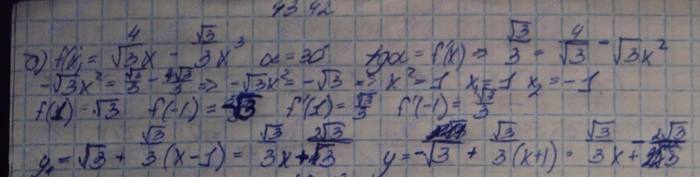 43.42
б) f(x) = 4/√3 x - √3/3 x³ α = 30° tgα = f'(x) ⇒ √3/3 = 4/√3 - √3x²
-√3x² = √3/3 - 4√3/3 ⇒ -√3x² = -√3 ⇒ x² = 1 x₁ = 1 x₂ = -1
f(1) = √3 f(-1) = -√3 f'(1) = √3/3 f'(-1) = √3/3
y₁ = √3 + √3/3 (x-1) = √3/3 x + 2√3/3 y = -√3 + √3/3 (x+1) = √3/3 x - 2√3/3